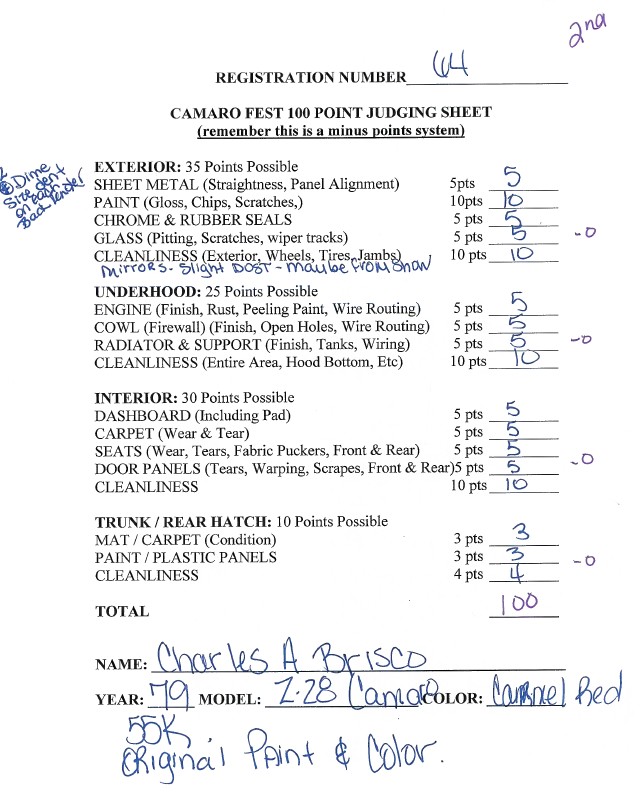 2nd
REGISTRATION NUMBER 64
CAMARO FEST 100 POINT JUDGING SHEET
(remember this is a minus points system)
EXTERIOR: 35 Points Possible
Dime
Size dent
on each
Back Fender
SHEET METAL (Straightness, Panel Alignment) 5pts 5
PAINT (Gloss, Chips, Scratches,) 10pts 10
CHROME & RUBBER SEALS 5 pts 5
GLASS (Pitting, Scratches, wiper tracks) 5 pts 5 -0
CLEANLINESS (Exterior, Wheels, Tires, Jambs) 10 pts 10
Mirrors - Slight Dust - Maybe from Show
UNDERHOOD: 25 Points Possible
ENGINE (Finish, Rust, Peeling Paint, Wire Routing) 5 pts 5
COWL (Firewall) (Finish, Open Holes, Wire Routing) 5 pts 5
RADIATOR & SUPPORT (Finish, Tanks, Wiring) 5 pts 5 -0
CLEANLINESS (Entire Area, Hood Bottom, Etc) 10 pts 10
INTERIOR: 30 Points Possible
DASHBOARD (Including Pad) 5 pts 5
CARPET (Wear & Tear) 5 pts 5
SEATS (Wear, Tears, Fabric Puckers, Front & Rear) 5 pts 5
DOOR PANELS (Tears, Warping, Scrapes, Front & Rear)5 pts 5 -0
CLEANLINESS 10 pts 10
TRUNK / REAR HATCH: 10 Points Possible
MAT / CARPET (Condition) 3 pts 3
PAINT / PLASTIC PANELS 3 pts 3 -0
CLEANLINESS 4 pts 4
TOTAL 100
NAME: Charles A Brisco
YEAR: 79 MODEL: Z-28 Camaro COLOR: Red
55K.
Original Paint & Color.